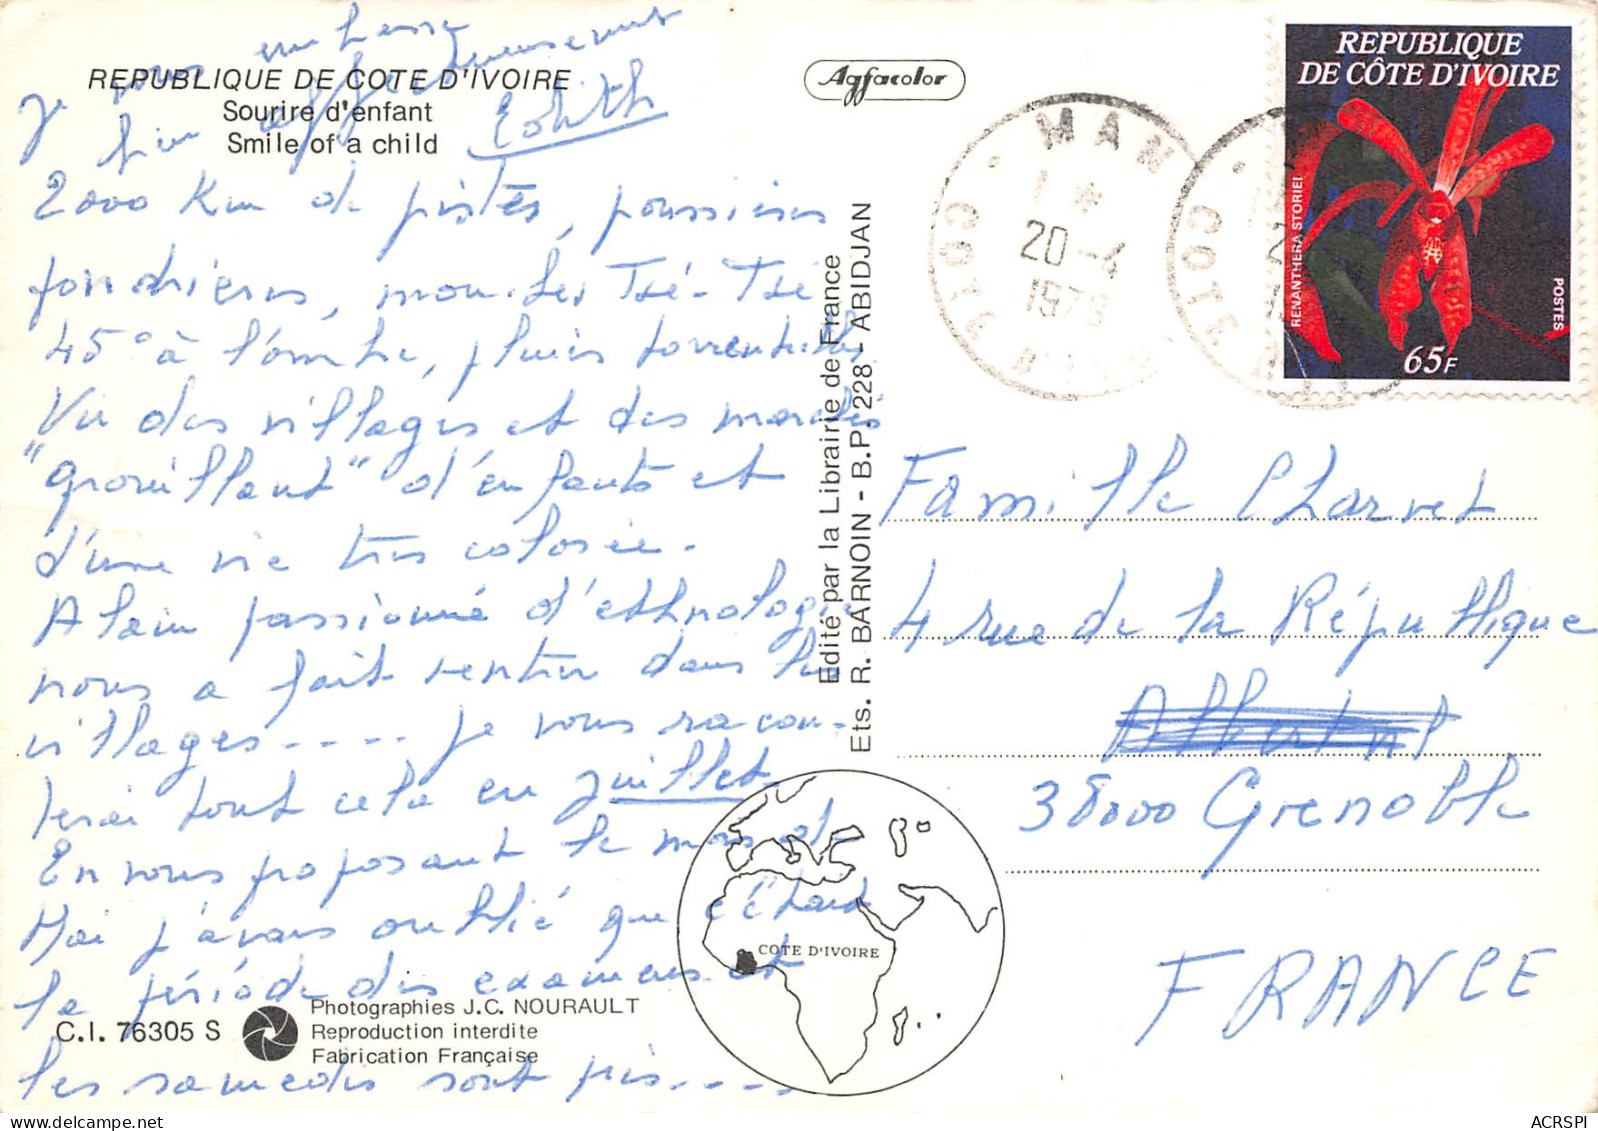 REPUBLIQUE DE COTE D'IVOIRE
Sourire d'enfant
Smile of a child
2000 Km de pistes, poussières
fondrières, mouches Tsé-Tsé
45° à l'ombre, pluies torrentielles
Vu des villages et des marchés
"grouillant" d'enfants et
d'une vie très colorée.
Alain passionné d'ethnologie
nous a fait rentrer dans les
villages.... je vous racon-
terai tout cela en juillet
En vous proposant le mois de
Mai j'avais oublié que c'était
la période des examens et
les samedis sont pris....
je vous embrasse
bien affectueusement
Edith
C.I. 76305 S
Photographies J.C. NOURAULT
Reproduction interdite
Fabrication Française
Edité par la Librairie de France
Ets. R. BARNOIN - B.P. 228 - ABIDJAN
Agfacolor
COTE D'IVOIRE
MAN
1 *
20-4
1978
COTE D'IVOIRE
COTE
REPUBLIQUE
DE CÔTE D'IVOIRE
RENANTHERA STORIEI
POSTES
65F
Famille Charvet
4 rue de la République
38000 Grenoble
FRANCE
ACRSPI